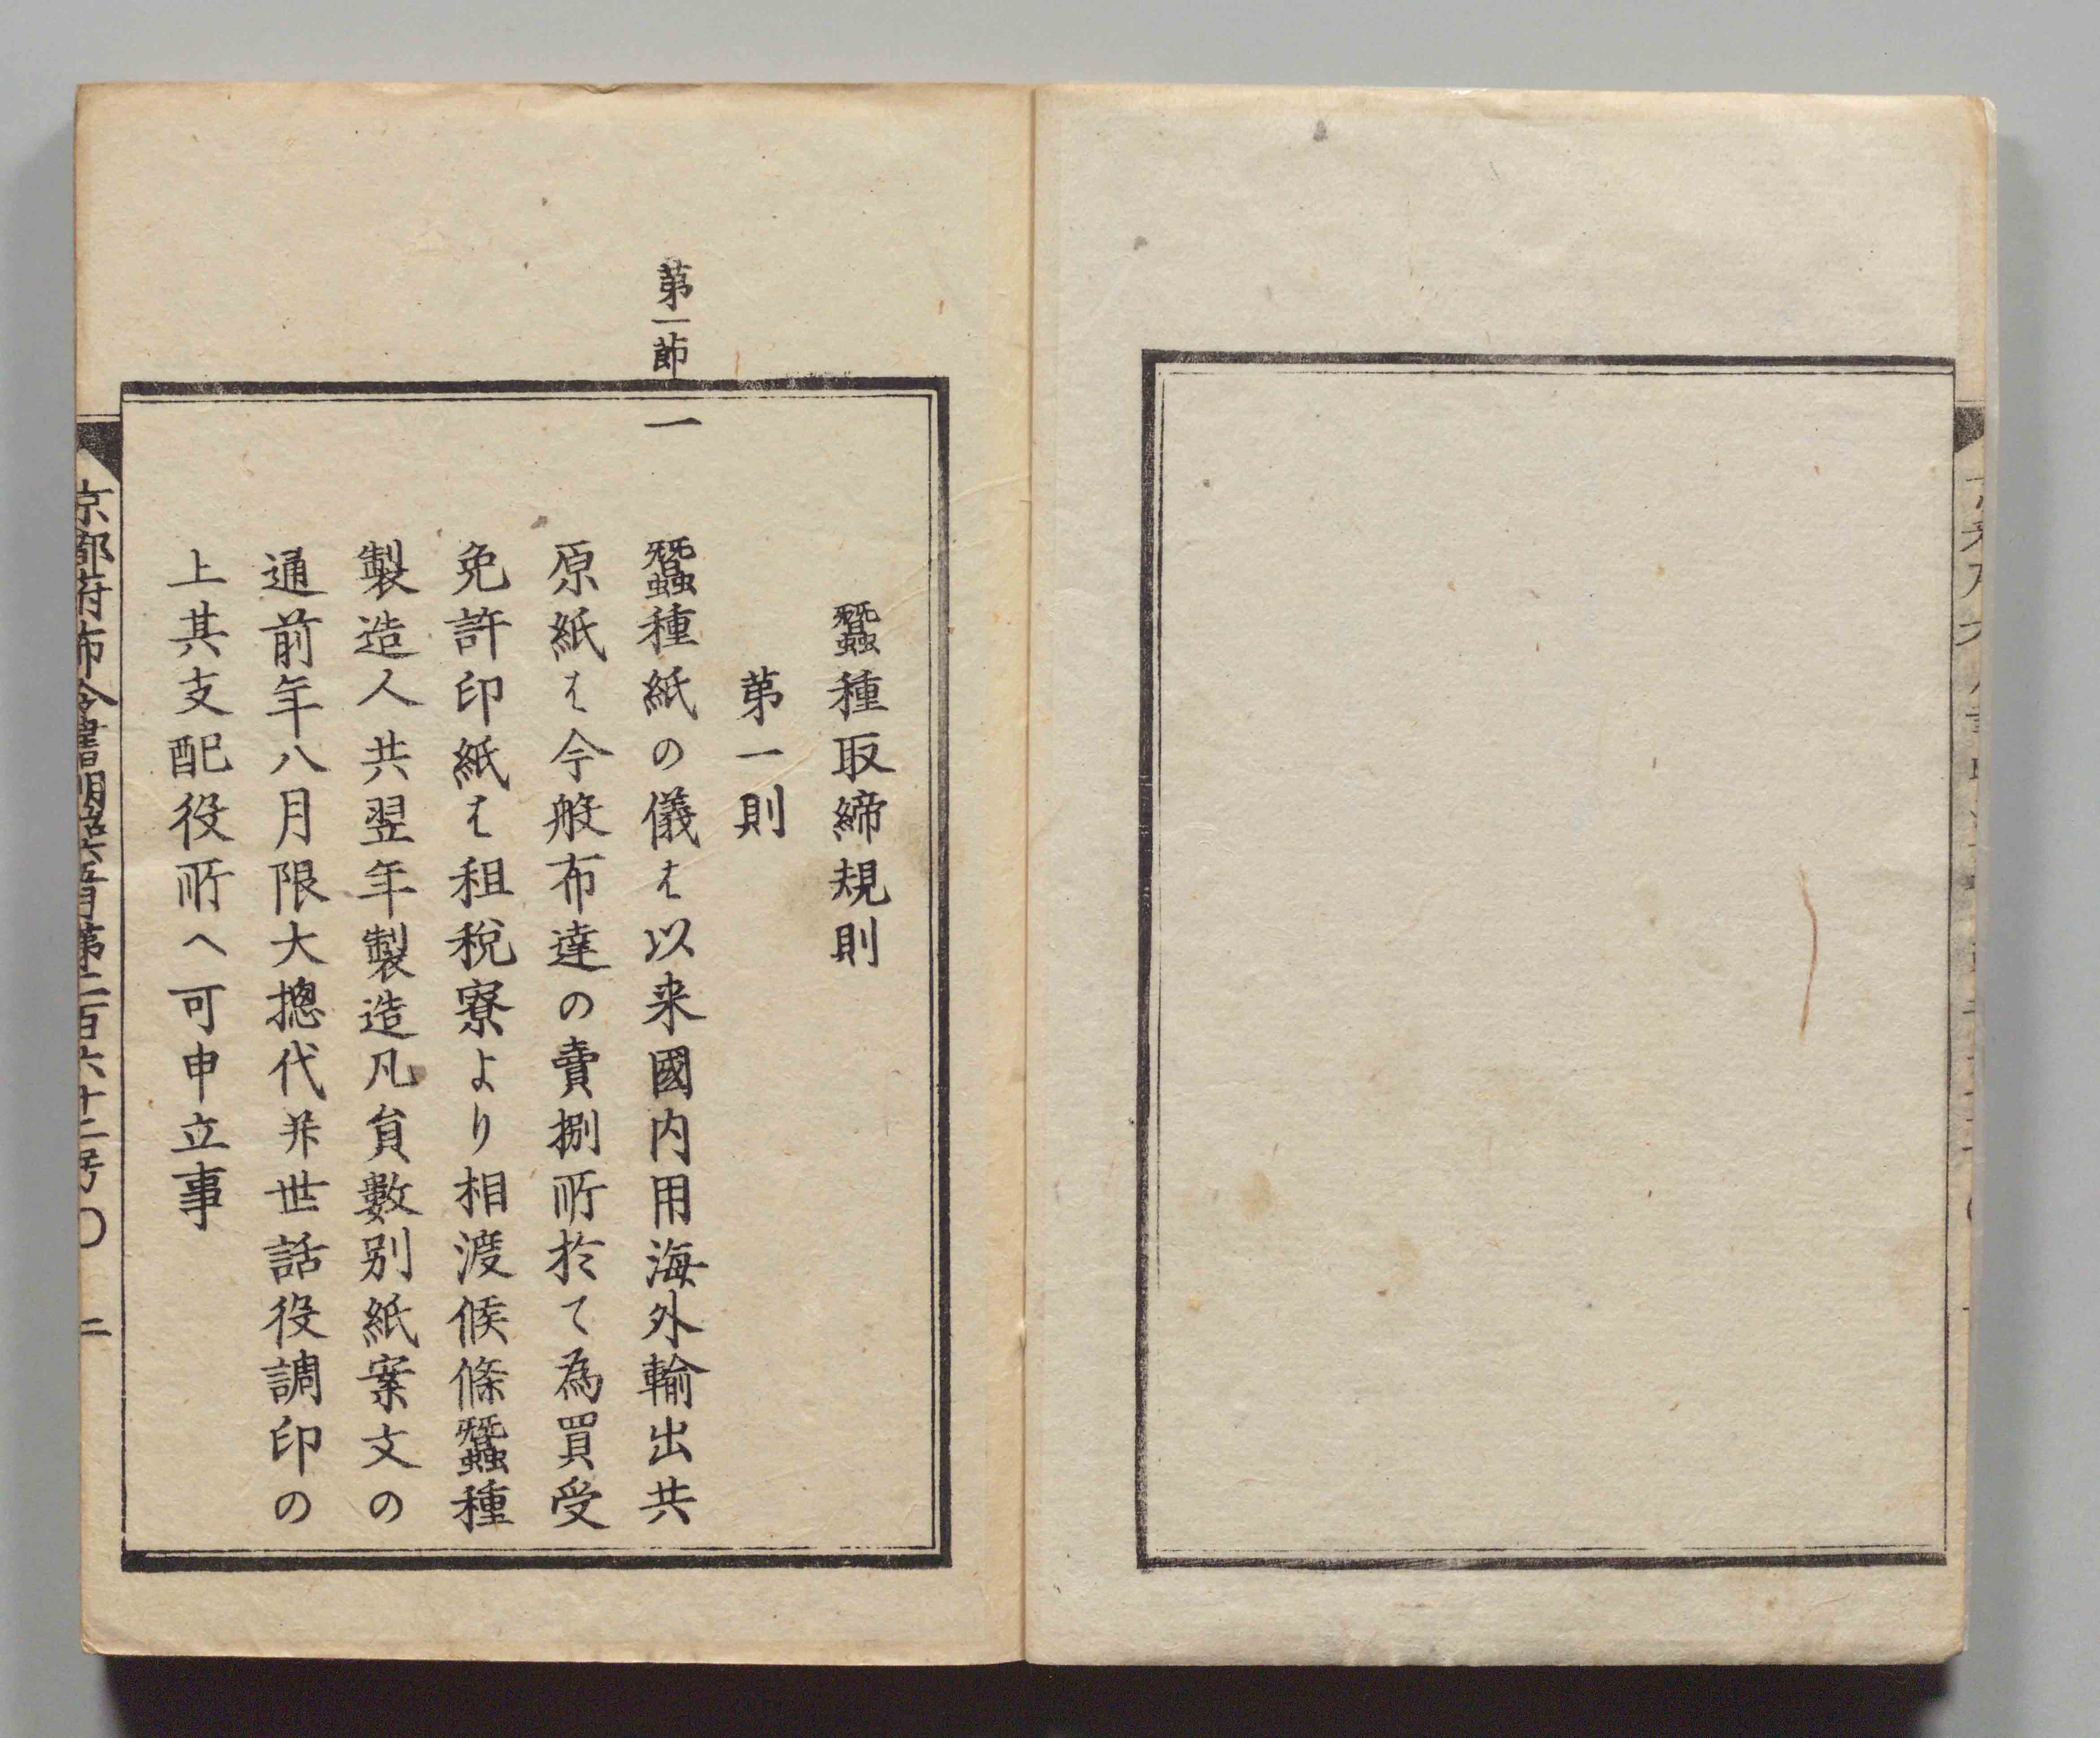 蠶種取締規則
第一則
第一節
一 蠶種紙の儀は以来國内用海外輸出共
原紙は今般布達の賣捌所於て為買受
免許印紙は租税寮より相渡候條蠶種
製造人共翌年製造凡員數别紙案文の
通前年八月限大摠代并世話役調印の
上其支配役所へ可申立事
京都府布令書明治六年第二百六十二号〇 二